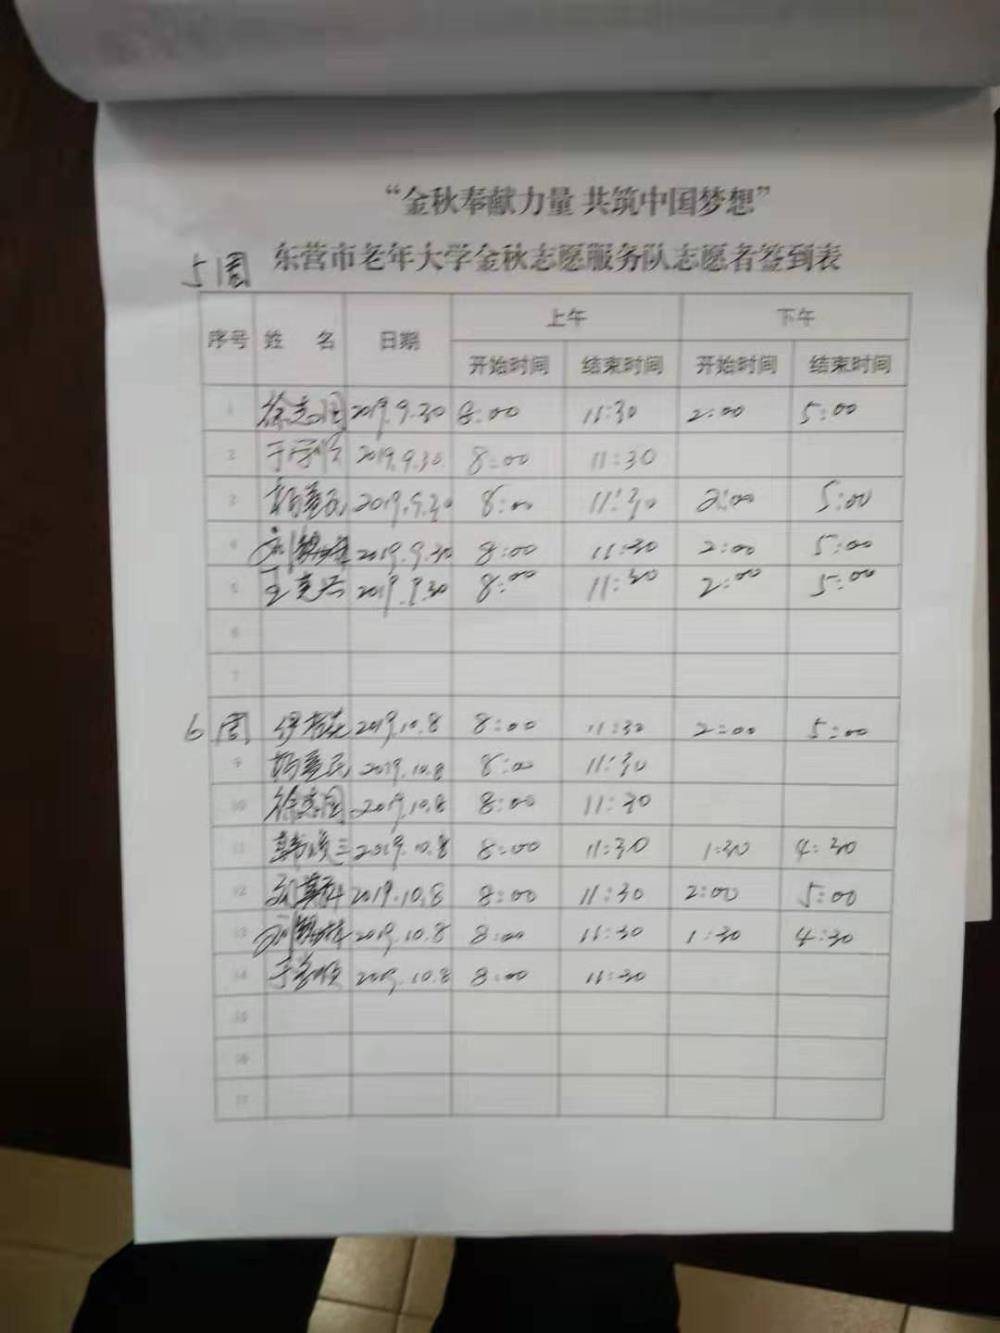 “金秋奉献力量 共筑中国梦想”
东营市老年大学金秋志愿服务队志愿者签到表
5周
序号 姓 名 日期 上午 下午
开始时间 结束时间 开始时间 结束时间
1 徐志国 2019.9.30 8:00 11:30 2:00 5:00
2 2019.9.30 8:00 11:30
3 2019.9.30 8:00 11:30 2:00 5:00
4 2019.9.30 8:00 11:30 2:00 5:00
5 2019.9.30 8:00 11:30 2:00 5:00
6
7
6周 2019.10.8 8:00 11:30 2:00 5:00
9 2019.10.8 8:00 11:30
10 徐志国 2019.10.8 8:00 11:30
11 2019.10.8 8:00 11:30 1:30 4:30
12 2019.10.8 8:00 11:30 2:00 5:00
13 2019.10.8 8:00 11:30 1:30 4:30
14 2019.10.8 8:00 11:30
15
16
17